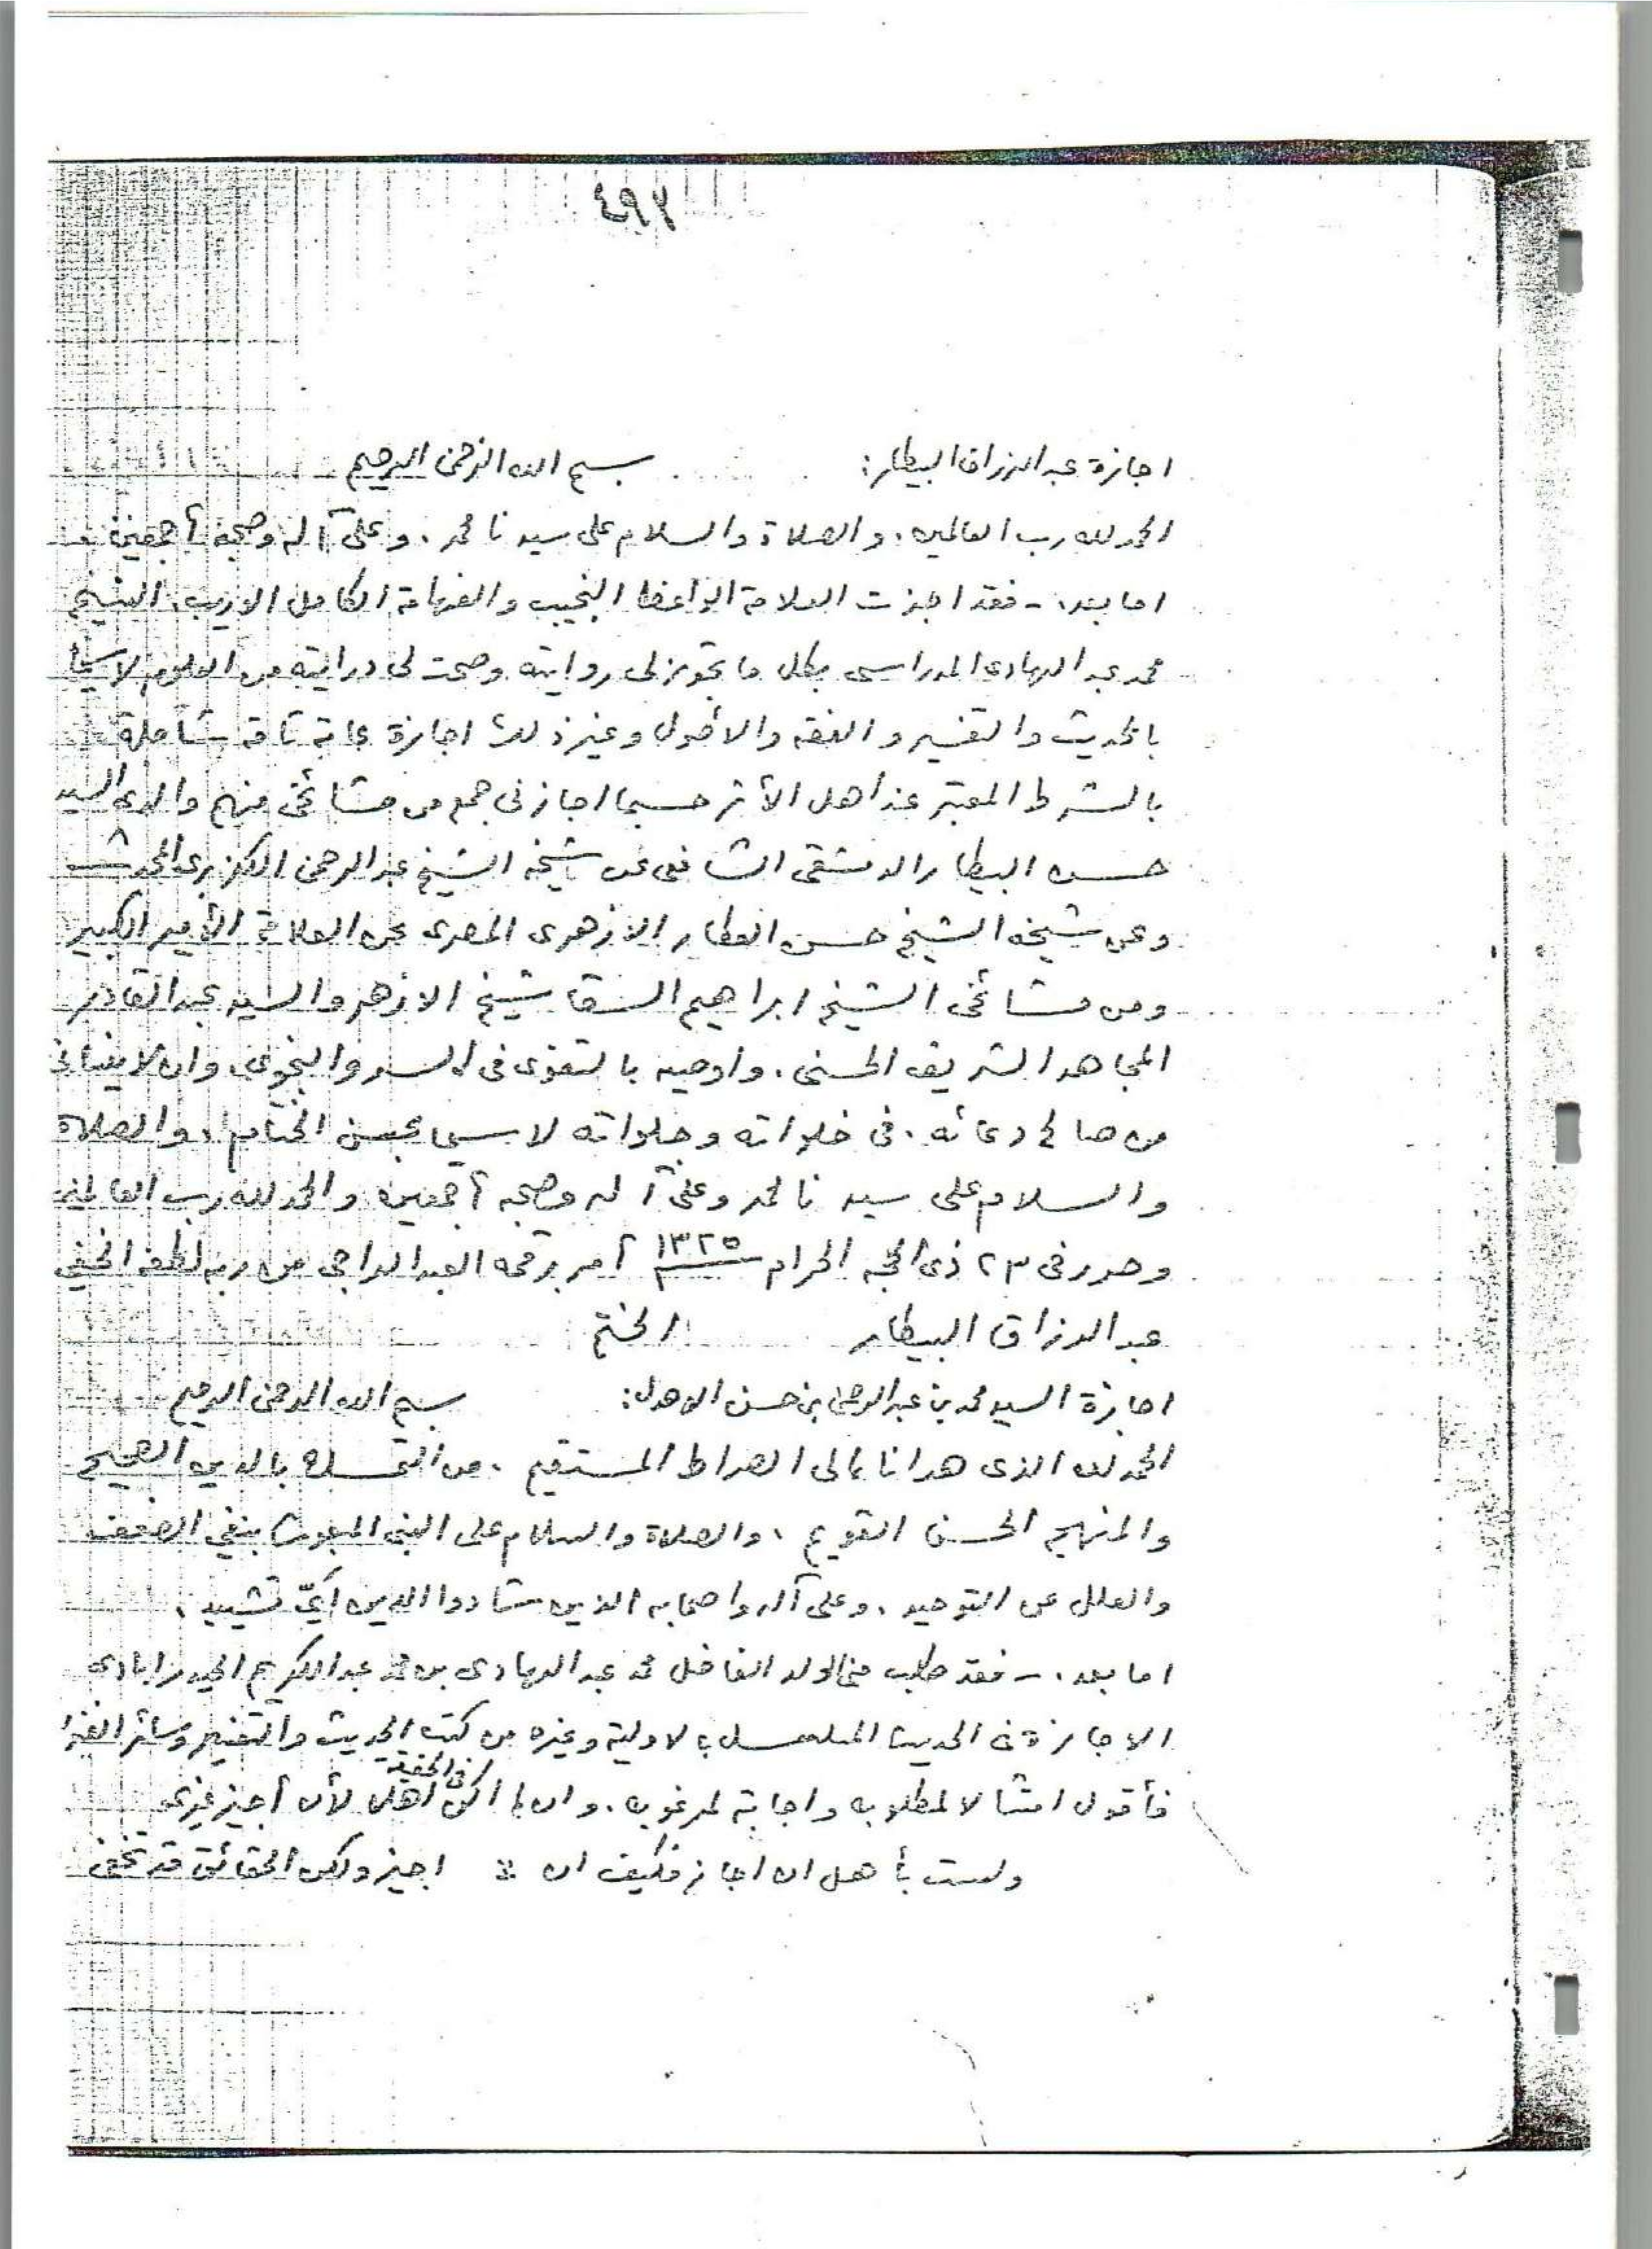 ٤٩٣
اجازة عبد الرزاق البيطار: بسم الله الرحمن الرحيم
الحمد لله رب العالمين، والصلاة والسلام على سيدنا محمد، وعلى آله وصحبه أجمعين
اما بعد، - فقد اجزت العلامة الواعظ النجيب والفهامة الكامل الاريب، الشيخ
محمد عبد الهادى المدراسى بكل ما تجوز لى روايته وصحت لى درايته من العلوم لا سيما
بالحديث والتفسير والفقه والأصول وغير ذلك اجازة عامة تامة شاملة
بالشرط المعتبر عند اهل الأثر حسبما اجازنى جمع من مشائخى منهم والدى السيد
حسن البيطار الدمشقى الشافعى عن شيخه الشيخ عبد الرحمن الكزبرى المحدث
وعن شيخه الشيخ حسن العطار الازهرى المصرى عن العلامة الأمير الكبير
ومن مشائخى الشيخ ابراهيم السقا شيخ الازهر والسيد عبد القادر
المجاهد الشريف الحسنى، واوصيه بالتقوى فى السر والنجوى، وان لا ينسانى
من صالح دعائه، فى خلواته وجلواته لا سيما بحسن الختام، والصلاة
والسلام على سيدنا محمد وعلى آله وصحبه أجمعين والحمد لله رب العالمين
وحرر فى ٢٣ ذى الحجه الحرام ١٣٢٥ أمر برقمه العبد الراجى من ربه لطفه الخفى
عبد الرزاق البيطار الختم
اجازة السيد محمد بن عبد الرحمن بن حسن الاهدل: بسم الله الرحمن الرحيم
الحمد لله الذى هدانا إلى الصراط المستقيم، من التمسك بالدين الصحيح
والمنهج الحسن القويم، والصلاة والسلام على النبى المبعوث بنفي الضعف
والعلل عن التوحيد، وعلى آله واصحابه الذين شادوا الدين أيّ تشييد،
اما بعد، - فقد طلب منى الولد الفاضل محمد عبد الهادى بن محمد عبد الكريم الحيدرابادى
الاجازة فى الحديث المسلسل بالاولية وغيره من كتب الحديث والتفسير وسائر
فأقول امتثالا لمطلوبه واجابة لمرغوبه، وان لم اكن فى الحقيقة اهلا لأن أجيز غيرى
ولست بأهل ان اجاز فكيف ان ؞ اجيز ولكن الحقائق قد تخفى